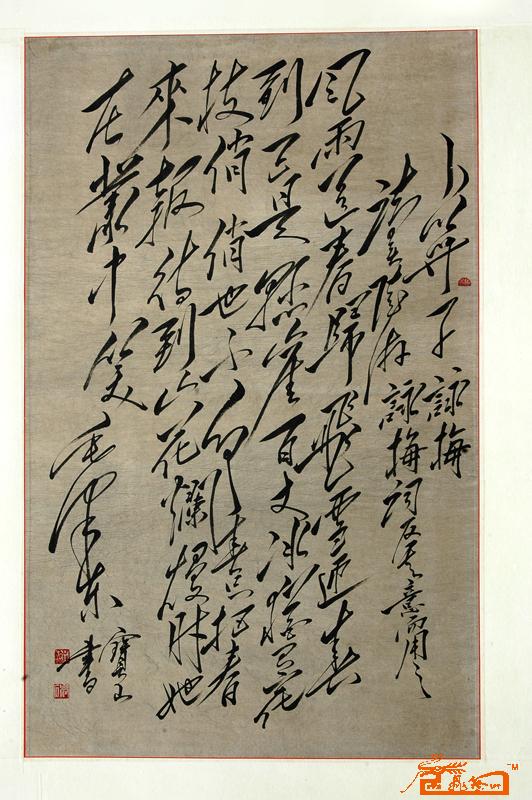 卜算子詠梅
讀陸游詠梅詞反其意而用之
風雨送春歸飛雪迎春
到已是懸崖百丈冰猶有花
枝俏俏也不爭春只把春
來報待到山花爛熳時她
在叢中笑毛澤東
書
TM